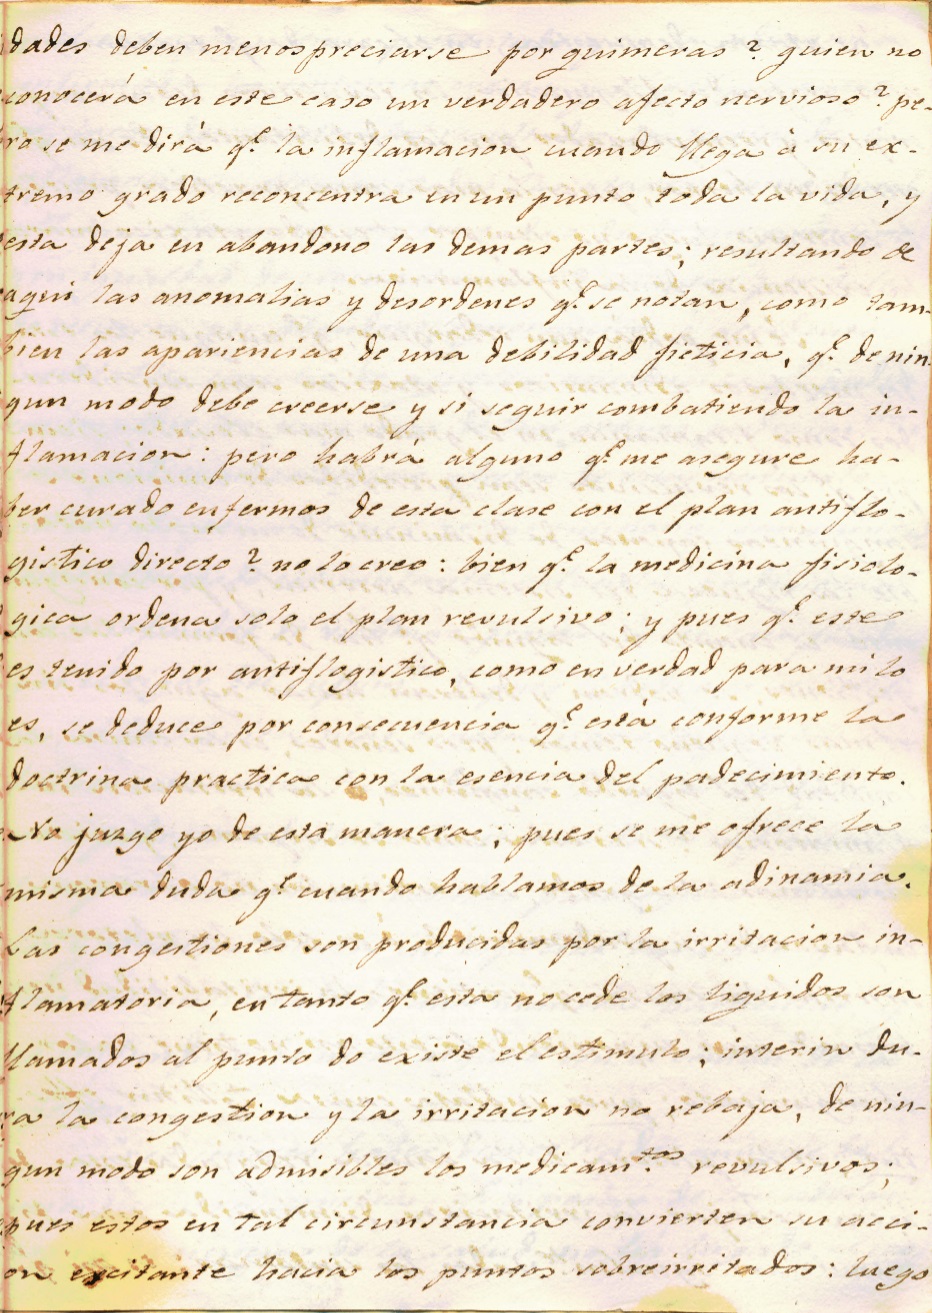 dades deben menospreciarse por quimeras? quien no
conocerá en este caso un verdadero afecto nervioso? pe-
ro se me dirá q.e la inflamacion cuando llega à su ex-
tremo grado reconcentra en un punto toda la vida, y
esta deja en abandono las demas partes; resultando de
aqui las anomalias y desordenes q.e se notan, como tam-
bien las apariencias de una debilidad ficticia, q.e de nin-
gun modo debe creerse y si seguir combatiendo la in-
flamacion: pero habrá alguno q.e me asegure ha-
ber curado enfermos de esta clase con el plan antiflo-
gistico directo? no lo creo: bien q.e la medicina fisiolo-
gica ordena solo el plan revulsivo; y pues q.e este
es tenido por antiflogistico, como en verdad para mi lo
es, se deduce por consecuencia q.e está conforme la
doctrina practica con la esencia del padecimiento.
No juzgo yo de esta manera; pues se me ofrece la
misma duda q.e cuando hablamos de la adinamia.
Las congestiones son producidas por la irritacion in-
flamatoria, en tanto q.e esta no cede los liquidos son
llamados al punto do existe el estimulo; interin du-
ra la congestion y la irritacion no rebaja, de nin-
gun modo son admisibles los medicam.tos revulsivos;
pues estos en tal circunstancia convierten su acci-
on excitante hacia los puntos sobreirritados: luego